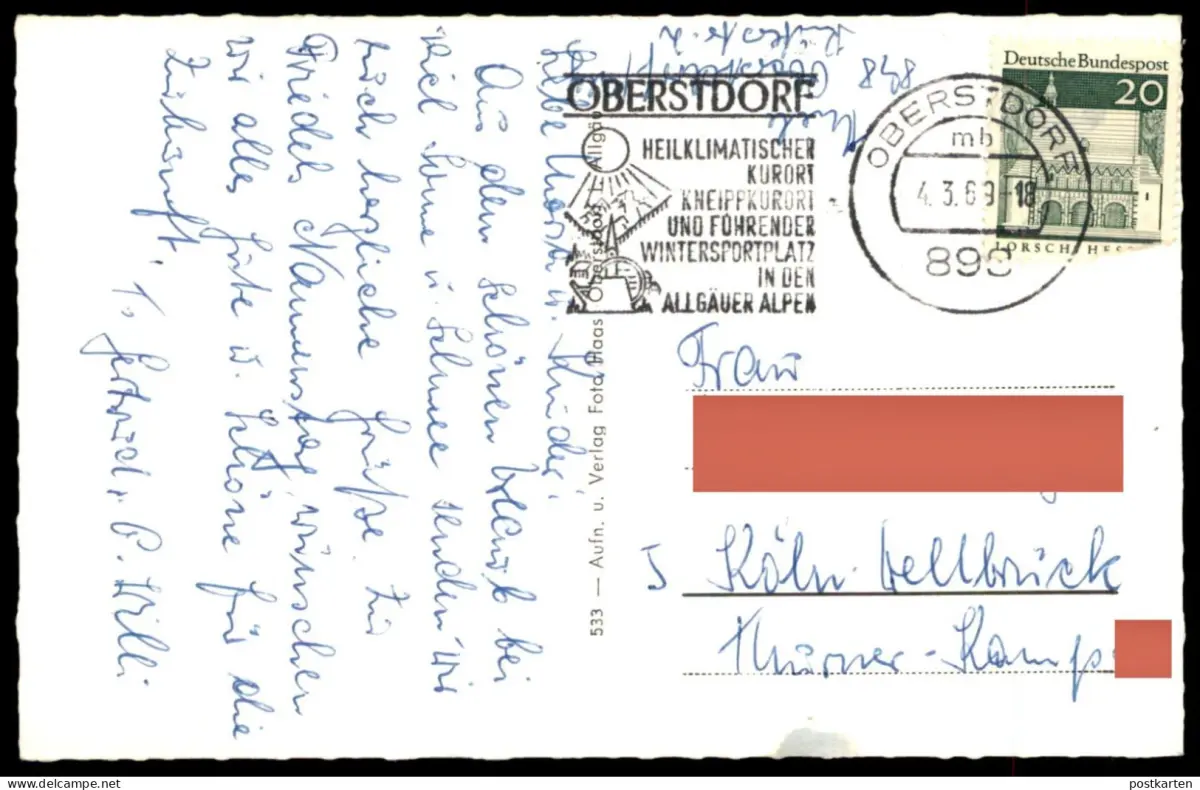 Liebe Ursa u. Kinder!
Aus dem schönen Urlaub bei
viel Sonne u. Schnee senden wir
Euch herzliche Grüße. Zu
Friedels Namenstag wünschen
wir alles Gute u. Schöne für die
Zukunft.
Gertrud u. P. Willi
898 Oberstdorf
OBERSTDORF
HEILKLIMATISCHER
KURORT
KNEIPPKURORT
UND FÜHRENDER
WINTERSPORTPLATZ
IN DEN
ALLGÄUER ALPEN
OBERSTDORF
mb
4.3.69-18
898
Deutsche Bundespost
20
LORSCH/HES
533 — Aufn. u. Verlag Foto Haas Oberstdorf Allgäu
Frau
5 Köln-Dellbrück
Thurner-Kamp
postkarten